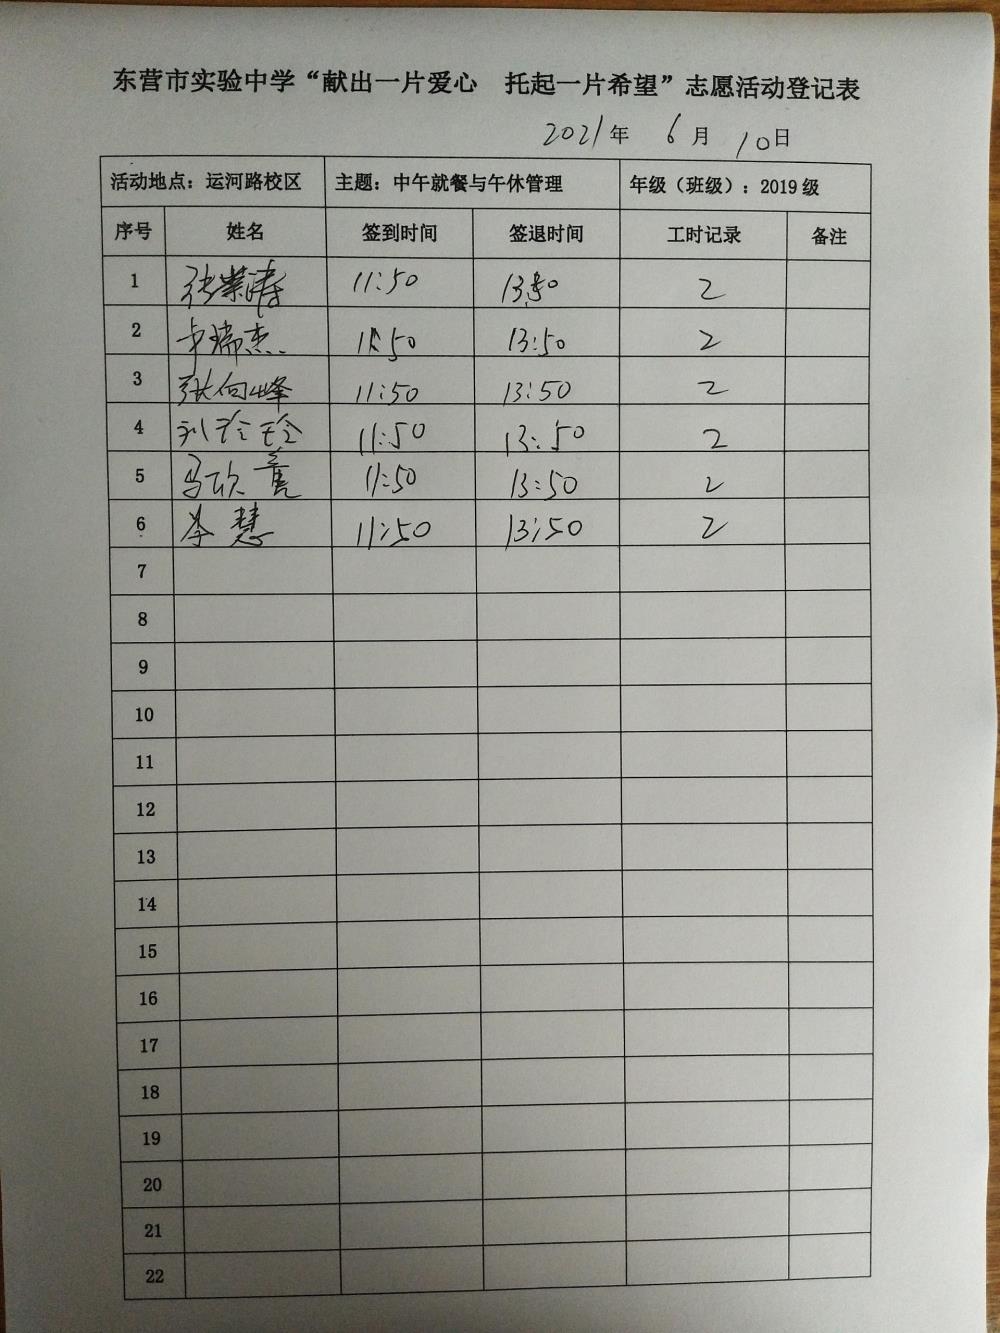 东营市实验中学“献出一片爱心 托起一片希望”志愿活动登记表
2021年 6月 10日
活动地点：运河路校区 主题：中午就餐与午休管理 年级（班级）：2019级
序号 姓名 签到时间 签退时间 工时记录 备注
1 张荣涛 11:50 13:50 2
2 卞瑞杰 11:50 13:50 2
3 张向峰 11:50 13:50 2
4 刘玲玲 11:50 13:50 2
5 马欣 11:50 13:50 2
6 李慧 11:50 13:50 2
7
8
9
10
11
12
13
14
15
16
17
18
19
20
21
22